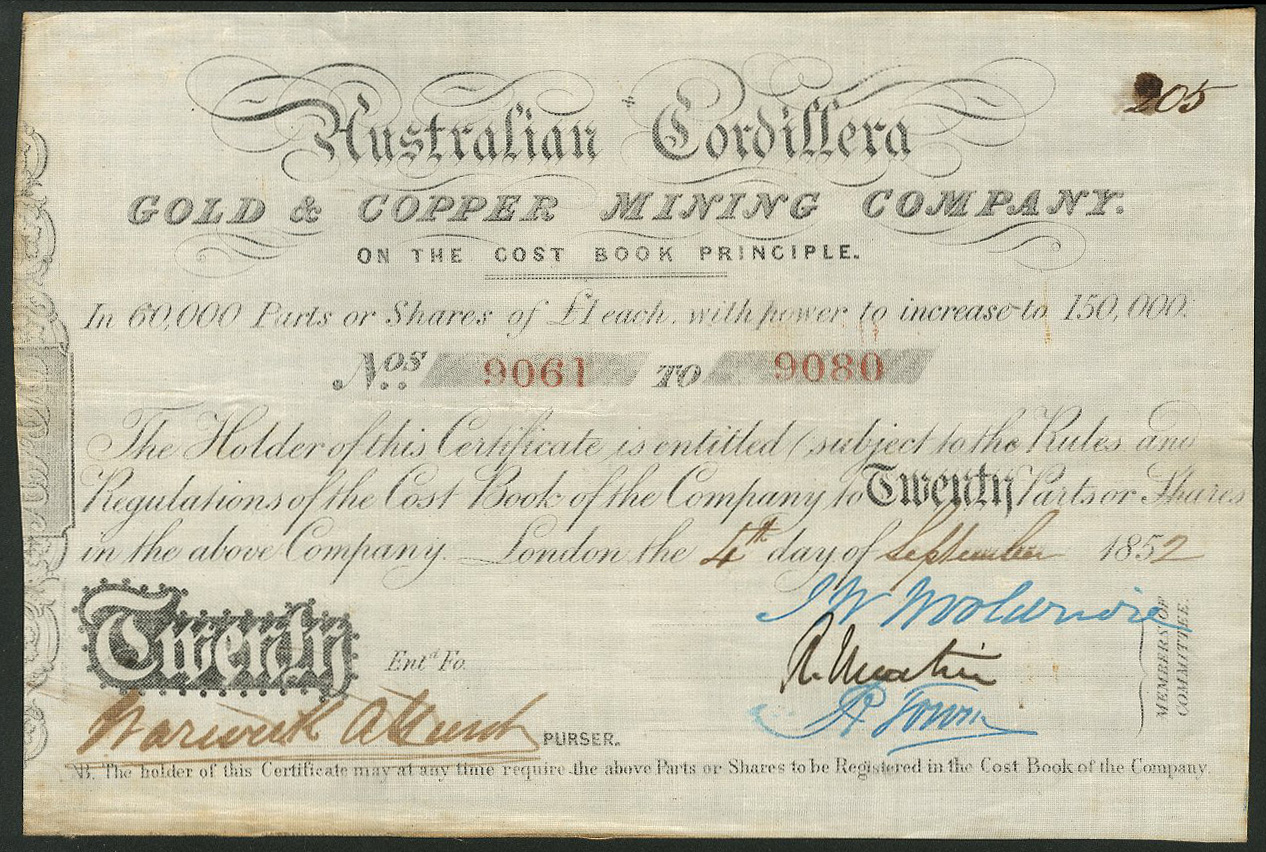 205
Australian Cordillera
GOLD & COPPER MINING COMPANY.
ON THE COST BOOK PRINCIPLE.
In 60,000 Parts or Shares of £1 each, with power to increase to 150,000.
Nos. 9061 TO 9080
The Holder of this Certificate is entitled (subject to the Rules and
Regulations of the Cost Book of the Company to Twenty Parts or Shares
in the above Company. London the 4th day of September 1852
Twenty
Entd. Fo.
R. Martin
MEMBERS OF
COMMITTEE.
Warwick PURSER.
B. The holder of this Certificate may at any time require the above Parts or Shares to be Registered in the Cost Book of the Company.